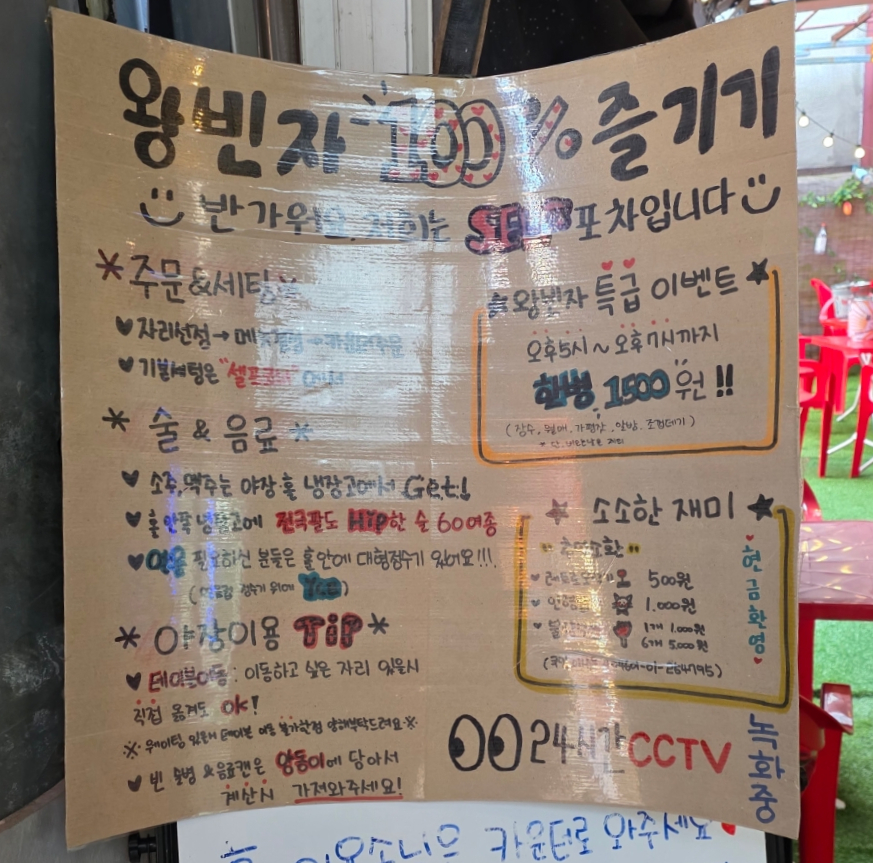 왕빈자 100% 즐기기
반가워요, 저희는 SELF포차입니다
주문&세팅
자리선정→메뉴결정→카운터주문
기본세팅은 "셀프코너"
술 & 음료
소주,맥주는 야장·홀 냉장고에서 Get!
홀 안쪽 냉장고에 전국팔도 HIP한 술 60여종
얼음 필요하신 분들은 홀안에 대형정수기 있어요!!!
정수기 위에
야장이용 TIP
테이블이동: 이동하고 싶은 자리 있을시
직접 옮겨도 OK!
※웨이팅 있을시 테이블 이동 불가한점 양해부탁드려요※
빈 술병 &음료캔은 양동이에 담아서
계산시 가져와주세요!
왕빈자 특급 이벤트
오후5시~오후7시까지
한병 1500원!!
(장수, 월매, 가평잣, 알밤, 조껍데기)
소소한 재미
추억소환
500원
1,000원
1개 1,000원
6개 5,000원
현금환영
24시간 CCTV 녹화중
카운터로 와주세요